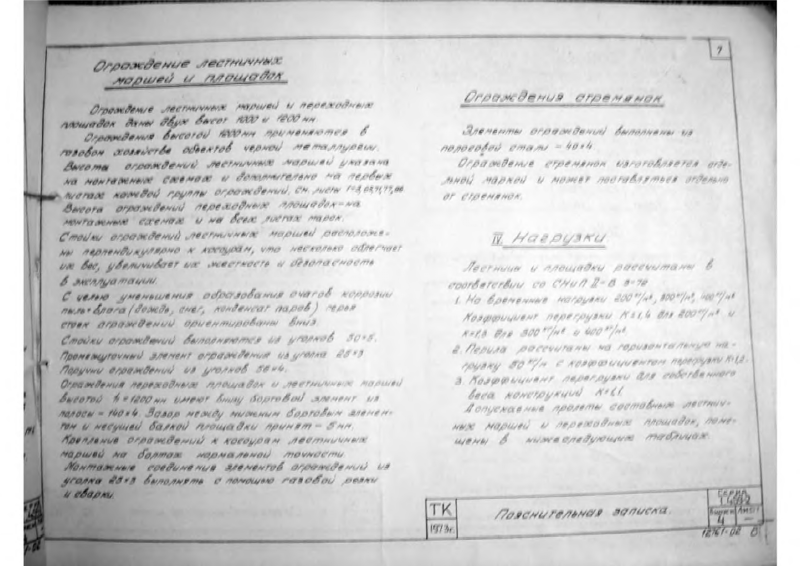 7
Ограждение лестничных
маршей и площадок
Ограждение лестничных маршей и переходных
площадок даны двух высот 1000 и 1200 мм.
Ограждения высотой 1200 мм применяются в
газовом хозяйстве объектов черной металлургии.
Высоты ограждений лестничных маршей указана
на монтажных схемах и дополнительно на первых
листах каждой группы ограждений, см. листы
Высота ограждений переходных площадок-на
монтажных схемах и на всех листах марок.
Стойки ограждений лестничных маршей расположе-
ны перпендикулярно к косоурам, что несколько облегчает
их вес, увеличивает их жесткость и безопасность
в эксплуатации.
С целью уменьшения образования очагов коррозии
пыль-влага (дождь, снег, конденсат паров) перья
стоек ограждений ориентированы вниз.
Стойки ограждений выполняются из уголков 50×5.
Промежуточный элемент ограждения из уголка 25×3
Поручни ограждений из уголков
Ограждения переходных площадок и лестничных маршей
высотой h=1200мм имеют внизу бортовой элемент из
полосы -140×4. Зазор между нижним бортовым элемен-
том и несущей балкой площадки принят - 5мм.
Крепление ограждений к косоурам лестничных
маршей на болтах нормальной точности.
Монтажные соединение элементов ограждений из
уголка 25×3 выполнять с помощью газовой резки
и сварки.
Ограждения стремянок
Элементы ограждений выполнены из
полосовой стали -40×4.
Ограждение стремянок изготовляется отде-
льной маркой и может поставляться отдельно
от стремянок.
IV Нагрузки
Лестницы и площадки рассчитаны в
соответствии со СНиП II-В
1. На временные нагрузки 200 кг/м², 300 кг/м², 400 кг/м²
Коэффициент перегрузки К=1,4 для 200 кг/м² и
К=1,3 для 300 кг/м² и 400 кг/м²
2. Перила рассчитаны на горизонтальную на-
грузку кг/м с коэффициентом перегрузки К=1,2.
3. Коэффициент перегрузки для собственного
веса конструкций К=1,1.
Допускаемые пролеты составных лестнич-
ных маршей и переходных площадок, поме-
щены в нижеследующих таблицах.
ТК
1973г.
Пояснительная записка.
Серия
Выпуск
4
Лист
—
12161-02 8